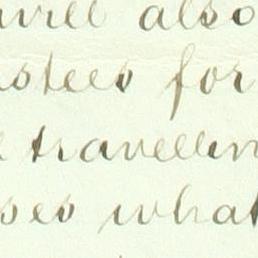 will also
stees for
travellin
ses what